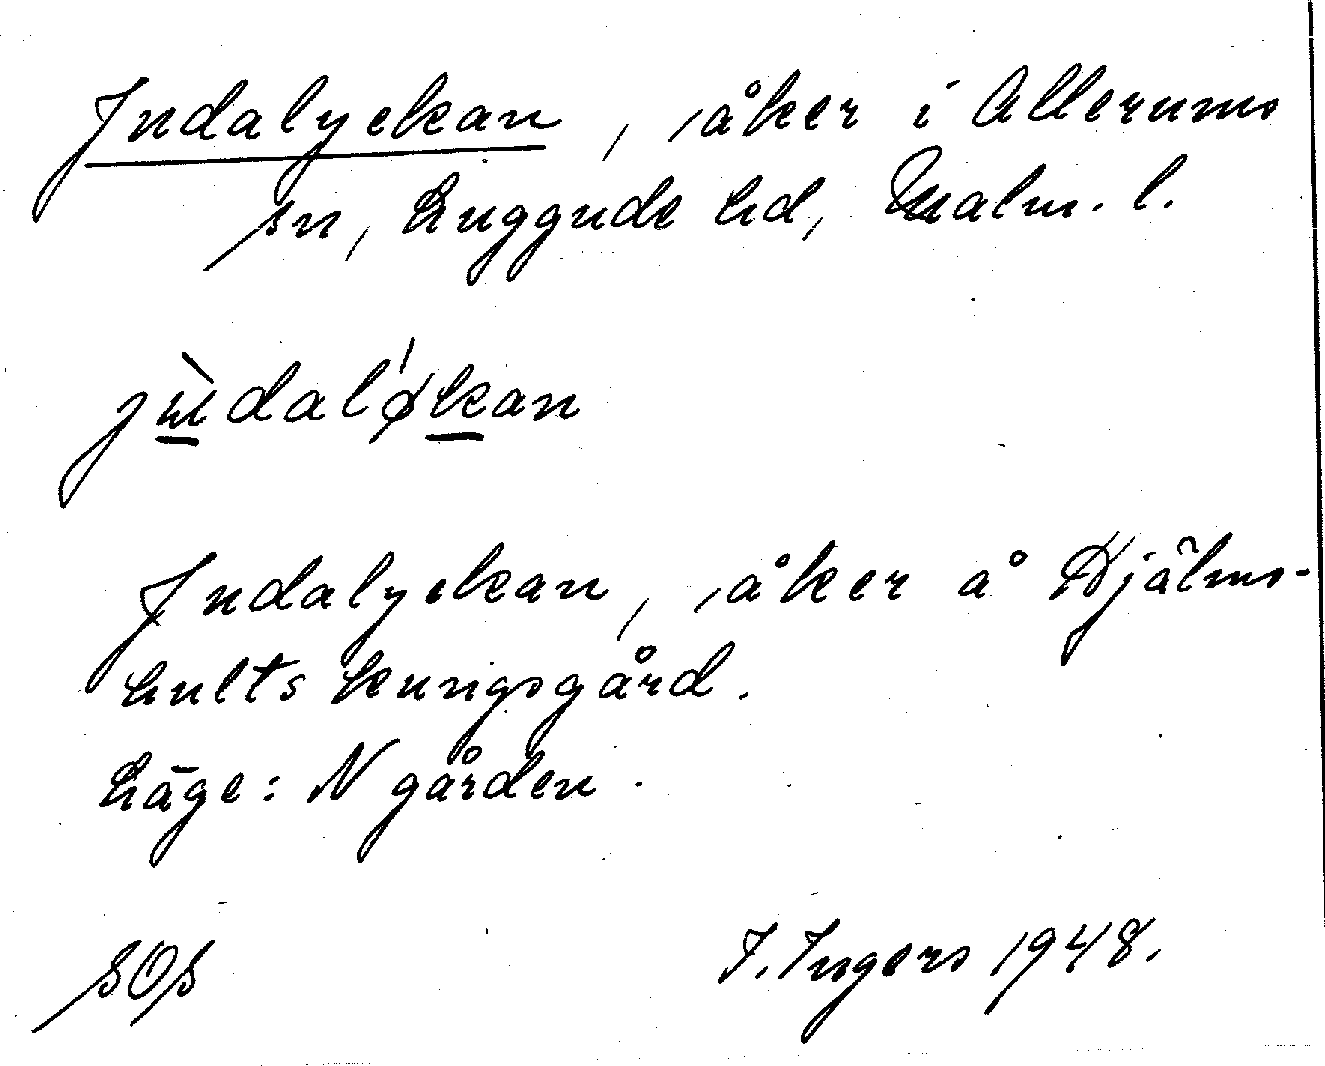 Judalyckan, åker i Allerums
sn, Luggude hd, Malm. l.
Judalyckan, åker å Hjälms-
hults kungsgård.
Läge: N gården.
SOs
I. Ingers 1948.